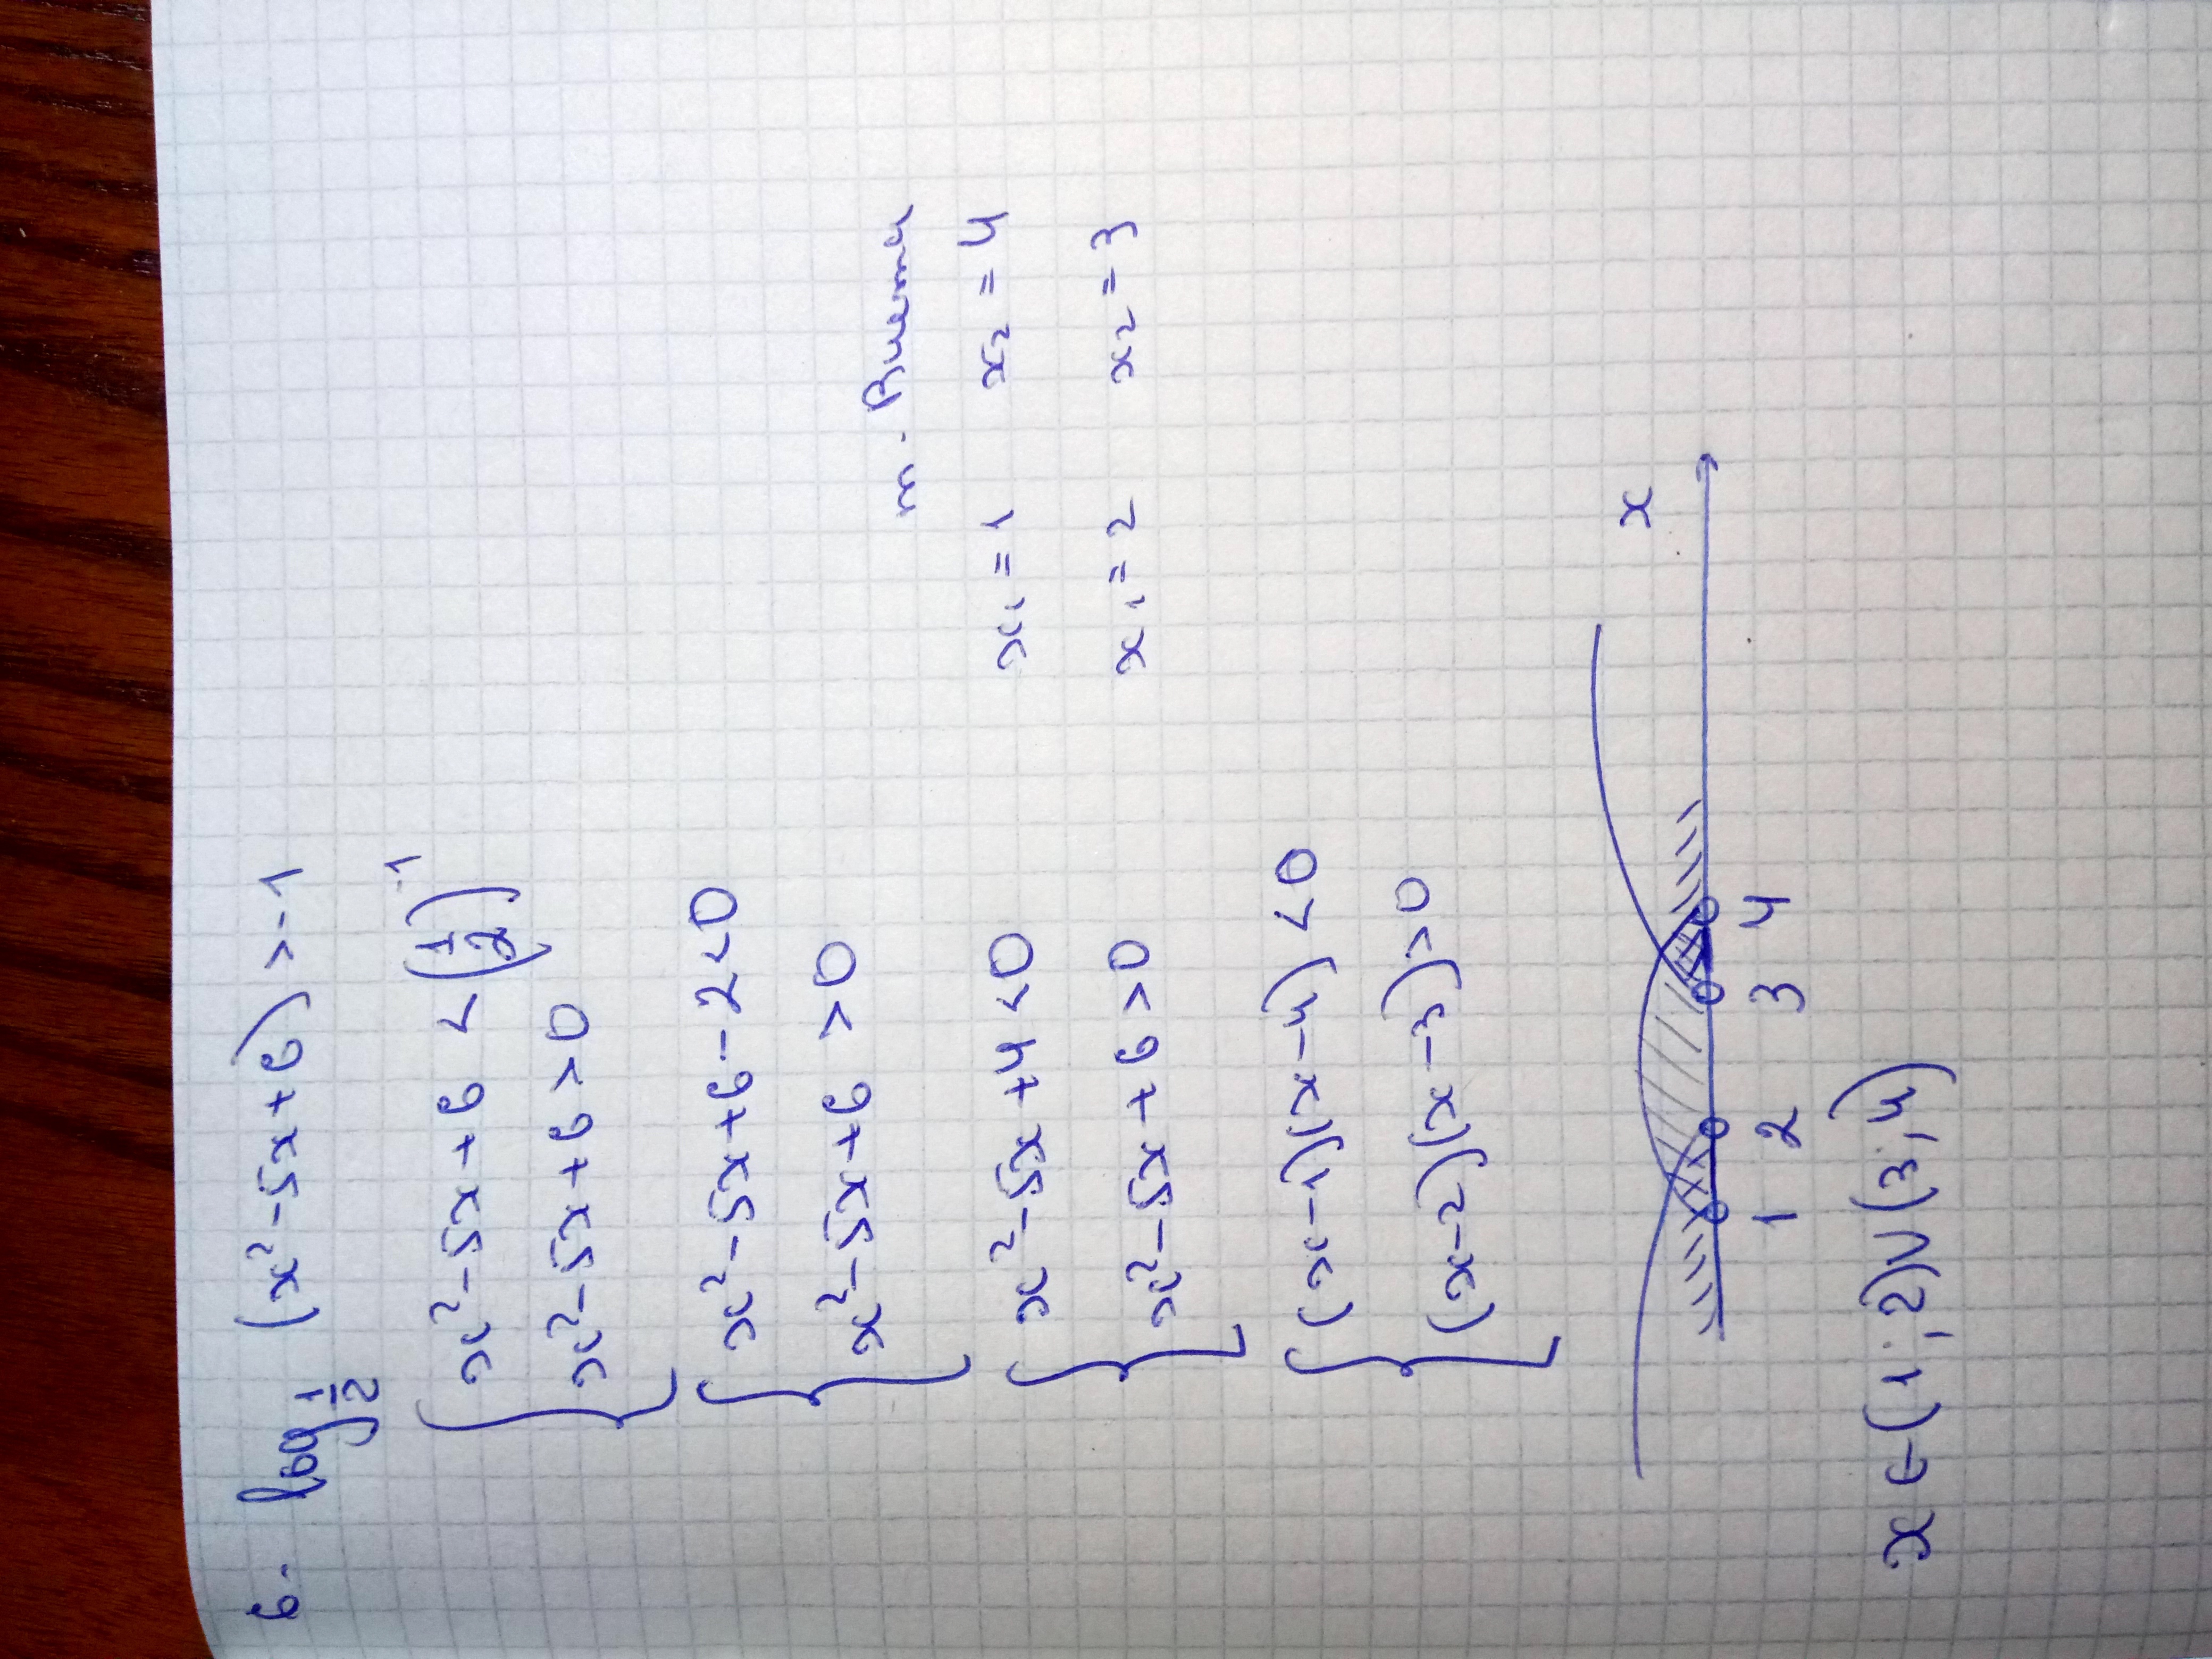 6. log 1/2 (x² - 5x + 6) > -1
{ x² - 5x + 6 < (1/2)⁻¹
x² - 5x + 6 > 0
{ x² - 5x + 6 - 2 < 0
x² - 5x + 6 > 0
т. Виета
{ x² - 5x + 4 < 0 x₁ = 1 x₂ = 4
x² - 5x + 6 > 0 x₁ = 2 x₂ = 3
{ (x - 1)(x - 4) < 0
(x - 2)(x - 3) > 0
x
1 2 3 4
x ∈ (1; 2) ∪ (3; 4)